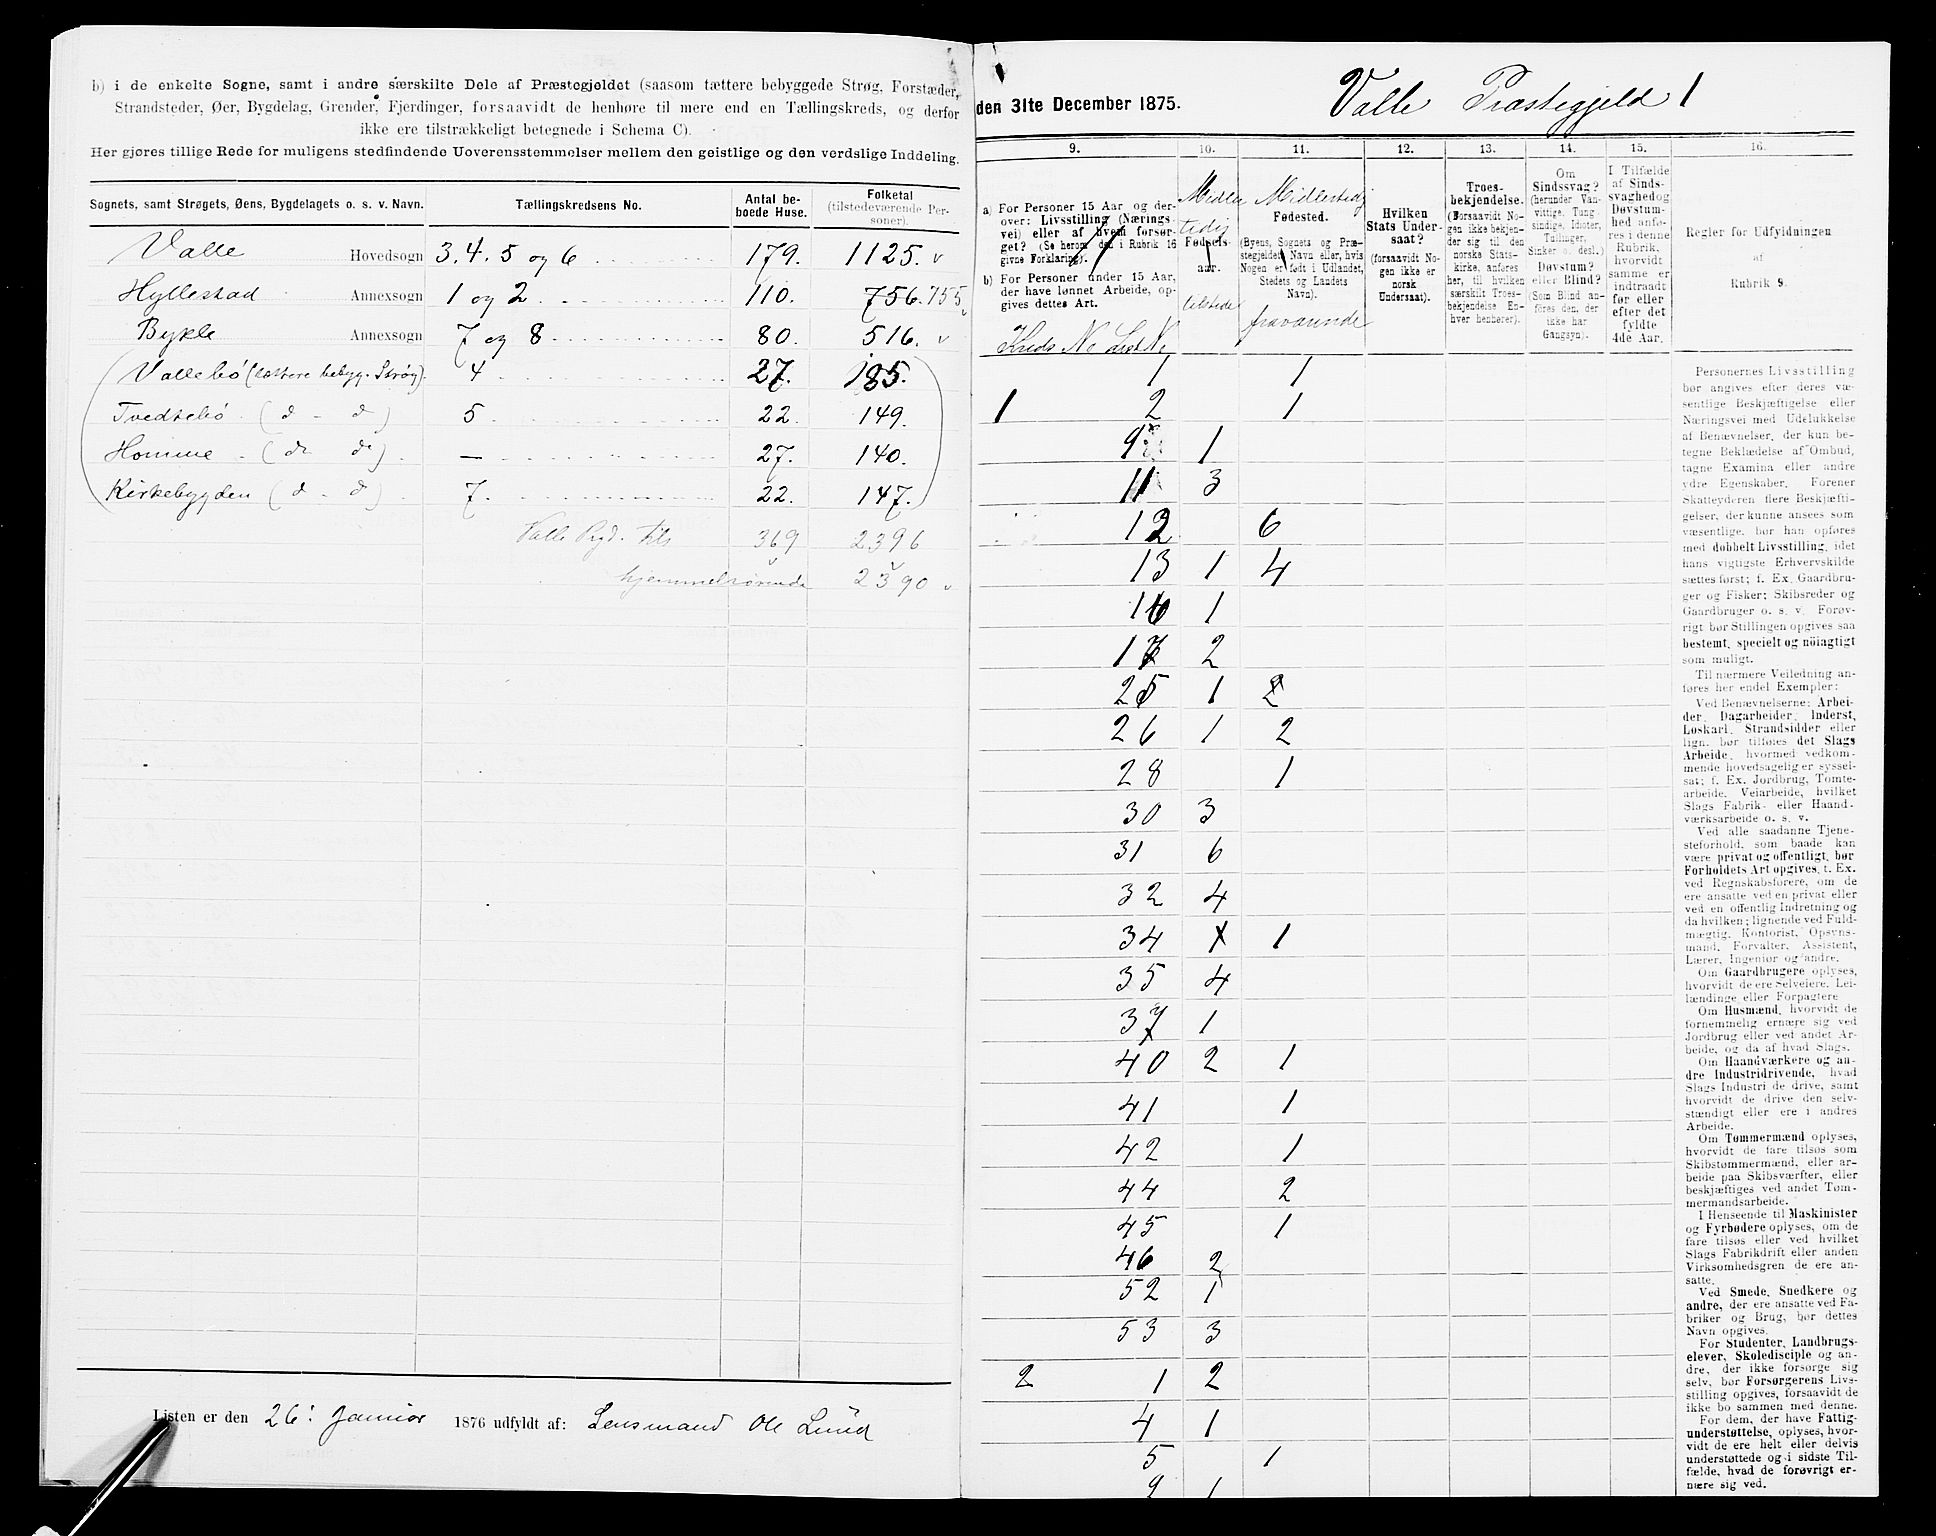 b) i de enkelte Sogne, samt i andre særskilte Dele af Præstegjeldet (saasom tættere bebyggede Strøg, Forstæder,
Strandsteder, Øer, Bygdelag, Grender, Fjerdinger, forsaavidt de henhøre til mere end en Tællingskreds, og derfor
ikke ere tilstrækkeligt betegnede i Schema C).
Her gjøres tillige Rede for muligens stedfindende Uoverensstemmelser mellem den geistlige og den verdslige Inddeling.
Sognets, samt Strøgets, Øens, Bygdelagets o. s. v. Navn. Tællingskredsens No. Antal beboede Huse. Folketal (tilstedeværende Personer).
Valle Hovedsogn 3. 4. 5 og 6 179. 1125. v
Hyllestad Annexsogn 1 og 2 110. 756. 755
Bykle Annexsogn 7 og 8 80. 516. v
Vallebö (tættere bebyg. Strøg). 4 27. 185.
Tvedtebö (d - d) 5 22. 149.
Homme - (do do) — 27. 140.
Kirkebygden (d - d) 7. 22. 147.
Valle Pgd. tils 369 2396
hjemmehørende 2390 v
Listen er den 26. Januar 1876 udfyldt af: Lensmand Ole Lund
den 31te December 1875. Valle Præstegjeld 1
9. 10. 11. 12. 13. 14. 15. 16.
a) For Personer 15 Aar og derover: Livsstilling (Næringsvei) eller af hvem forsørget? (Se herom den i Rubrik 16 givne Forklaring).
b) For Personer under 15 Aar, der have lønnet Arbeide, opgives dettes Art.
Kreds No List No
Midler
tidig
Fødselsaar.
tilstede
Midlertidig
Fødested.
(Byens, Sognets og Præstegjeldets Navn eller, hvis Nogen er født i Udlandet, Stedets og Landets Navn).
fraværende
Hvilken Stats Undersaat?
(forsaavidt Nogen ikke er norsk Undersaat).
Troesbekjendelse.
(Forsaavidt Nogen ikke bekjender sig til den norske Statskirke, anføres her, til hvilken særskilt Troesbekjendelse Enhver henhører).
Om Sindssvag? (herunder Vanvittige, Tungsindige, Idioter, Tullinger, Sinker o. desl.) Døvstum? eller Blind? (Som Blind anføres den, der ikke har Gangsyn).
I Tilfælde af Sindssvaghed og Døvstumhed anføres i denne Rubrik, hvorvidt samme er indtraadt før eller efter det fyldte 4de Aar.
Regler for Udfyldningen
af
Rubrik 9.
1 1
1 2 1
9 1
11 3
12 6
13 1 4
16 1
17 2
25 1 2
26 1 2
28 1
30 3
31 6
32 4
34 1 1
35 4
37 1
40 2 1
41 1
42 1
44 2
45 1
46 2
52 1
53 3
2 1 2
4 1
5 1
9 1
Personernes Livsstilling
bør angives efter deres væ-
sentlige Beskjæftigelse eller
Næringsvei med Udelukkelse
af Benævnelser, der kun be-
tegne Beklædelse af Ombud,
tagne Examina eller andre
ydre Egenskaber. Forener
Skatteyderen flere Beskjæfti-
gelser, der kunne ansees som
væsentlige, bør han opføres
med dobbelt Livsstilling, idet
hans vigtigste Erhvervskilde
sættes først; f. Ex. Gaardbru-
ger og Fisker; Skibsreder og
Gaardbruger o. s. v. Forøv-
rigt bør Stillingen opgives saa
bestemt, specielt og nöiagtigt
som muligt.
Til nærmere Veiledning an-
føres her endel Exempler:
Ved Benævnelserne: Arbei-
der, Dagarbeider, Inderst,
Løskarl, Strandsidder eller
lign. bør tilføies det Slags
Arbeide, hvormed vedkom-
mende hovedsagelig er syssel-
sat; f. Ex. Jordbrug, Tomte-
arbeide, Veiarbeide, hvilket
Slags Fabrik- eller Haand-
værksarbeide o. s. v.
Ved alle saadanne Tjene-
steforhold, som baade kan
være privat og offentligt, bør
Forholdets Art opgives, t. Ex.
ved Regnskabsførere, om de
ere ansatte ved en privat eller
ved en offentlig Indretning og
da hvilken; lignende ved Fuld-
mægtig, Kontorist, Opsyns-
mand, Forvalter, Assistent,
Lærer, Ingeniør og andre.
Om Gaardbrugere oplyses,
hvorvidt de ere Selveiere, Lei-
lændinge eller Forpagtere
Om Husmænd, hvorvidt de
fornemmelig ernære sig ved
Jordbrug eller ved andet Ar-
beide, og da af hvad Slags.
Om Haandværkere og an-
dre Industridrivende, hvad
Slags Industri de drive, samt
hvorvidt de drive den selv-
stændigt eller ere i andres
Arbeide.
Om Tømmermænd oplyses,
hvorvidt de fare tilsøs som
Skibstømmermænd, eller ar-
beide paa Skibsværfter, eller
beskjæftiges ved andet Tøm-
mermandsarbeide.
I Henseende til Maskinister
og Fyrbødere oplyses, om de
fare tilsøs eller ved hvilket
Slags Fabrikdrift eller anden
Virksomhedsgren de ere an-
satte.
Ved Smede, Snedkere og
andre, der ere ansatte ved Fa-
briker og Brug, bør dettes
Navn opgives.
For Studenter, Landbrugs-
elever, Skoledisciple og an-
dre, der ikke forsørge sig
selv, bør Forsørgerens Livs-
stilling opgives, forsaavidt de
ikke bo sammen med denne.
For dem, der have Fattig-
understøttelse, oplyses, hvor-
vidt de ere helt eller delvis
understøttede og i sidste Til-
fælde, hvad de forøvrigt er-
nære sig ved.